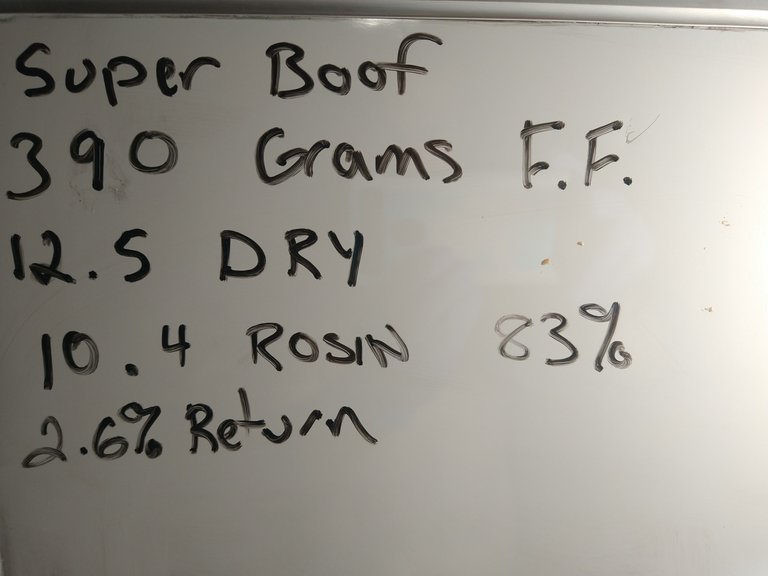 Super Boof
390 Grams F.F.
12.5 DRY
10.4 ROSIN 83%
2.6% Return